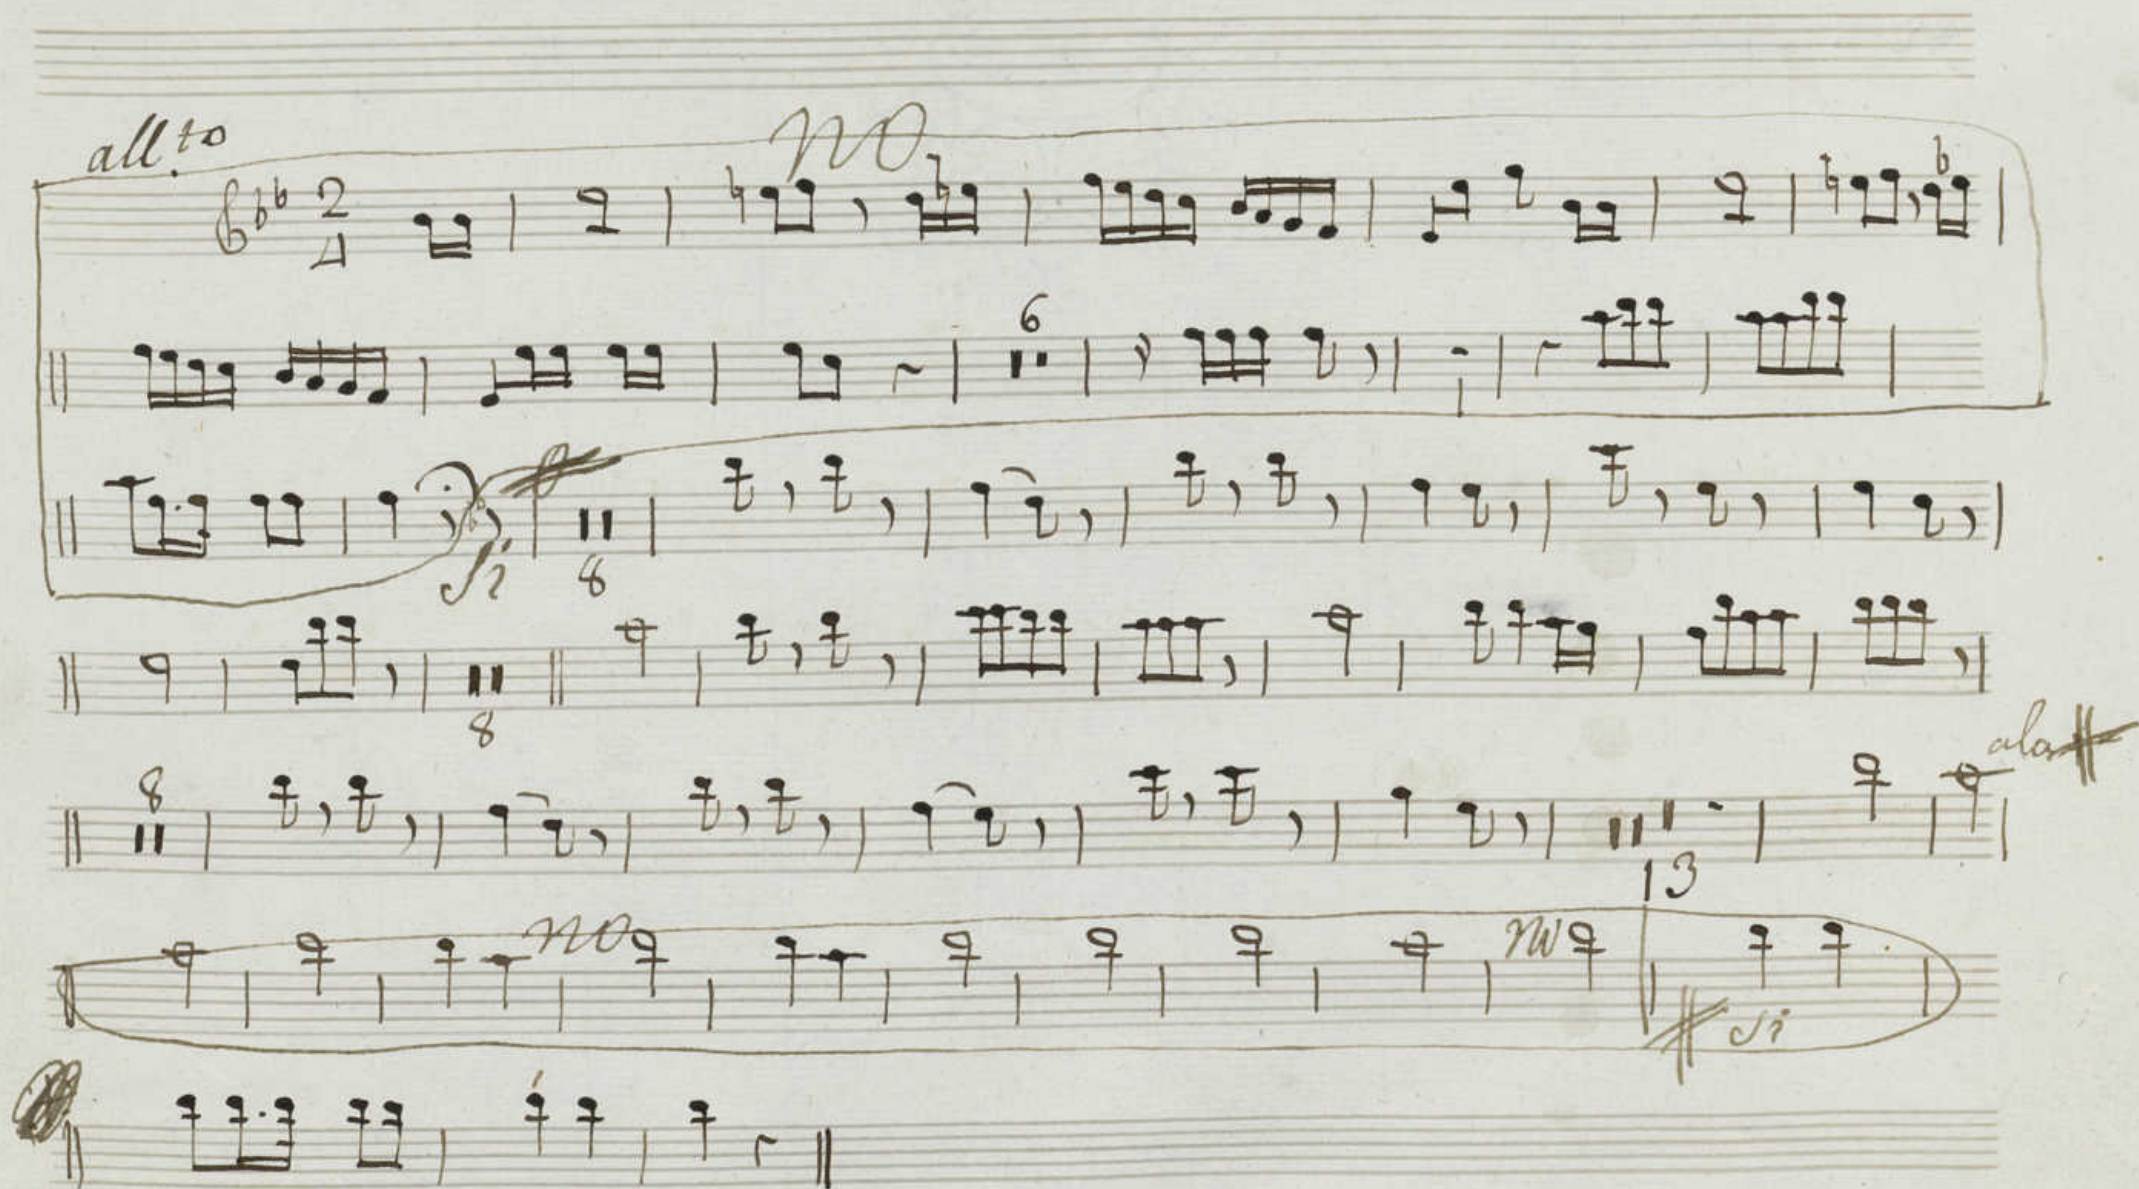 all.to
no
2
4
6
Si
8
8
8
13
ala
no
no
Si